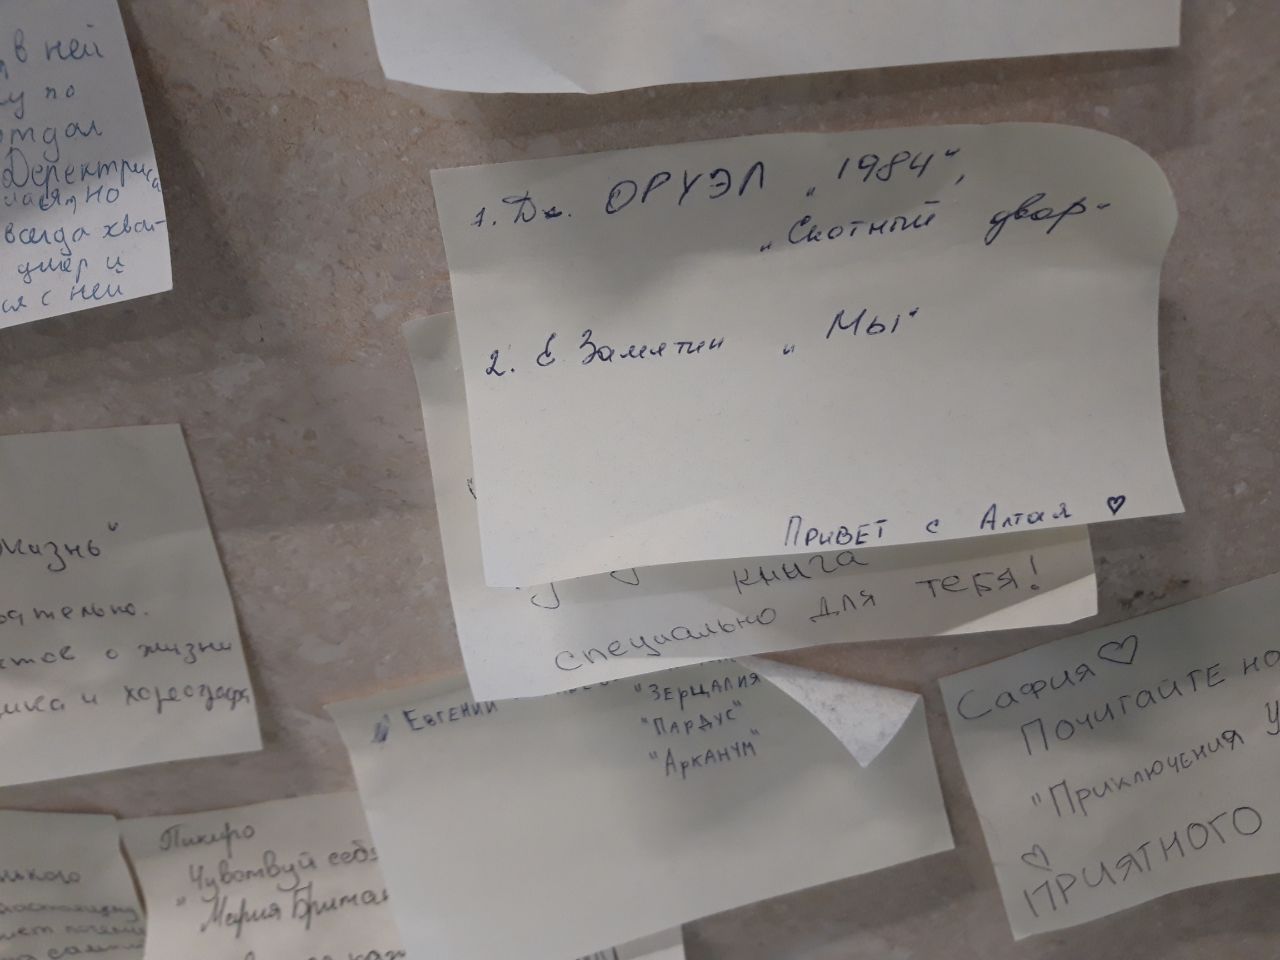 в ней
у по
отдал
Деректриса
но
всегда хват-
умер и
ся с ней
1. Дж. ОРУЭЛ „1984“,
„Скотный двор-
2. Е Замятин „Мы“
Привет с Алтая ♡
книга
специально для тебя!
Жизнь"
о жизни
и хореограф
Евгений
"Зерцалия
"Пардус"
"Арканум"
София♡
Почитайте
"Приключения
♡
ПРИЯТНОГО
Пикиро
Чувствуй себя
" Мария